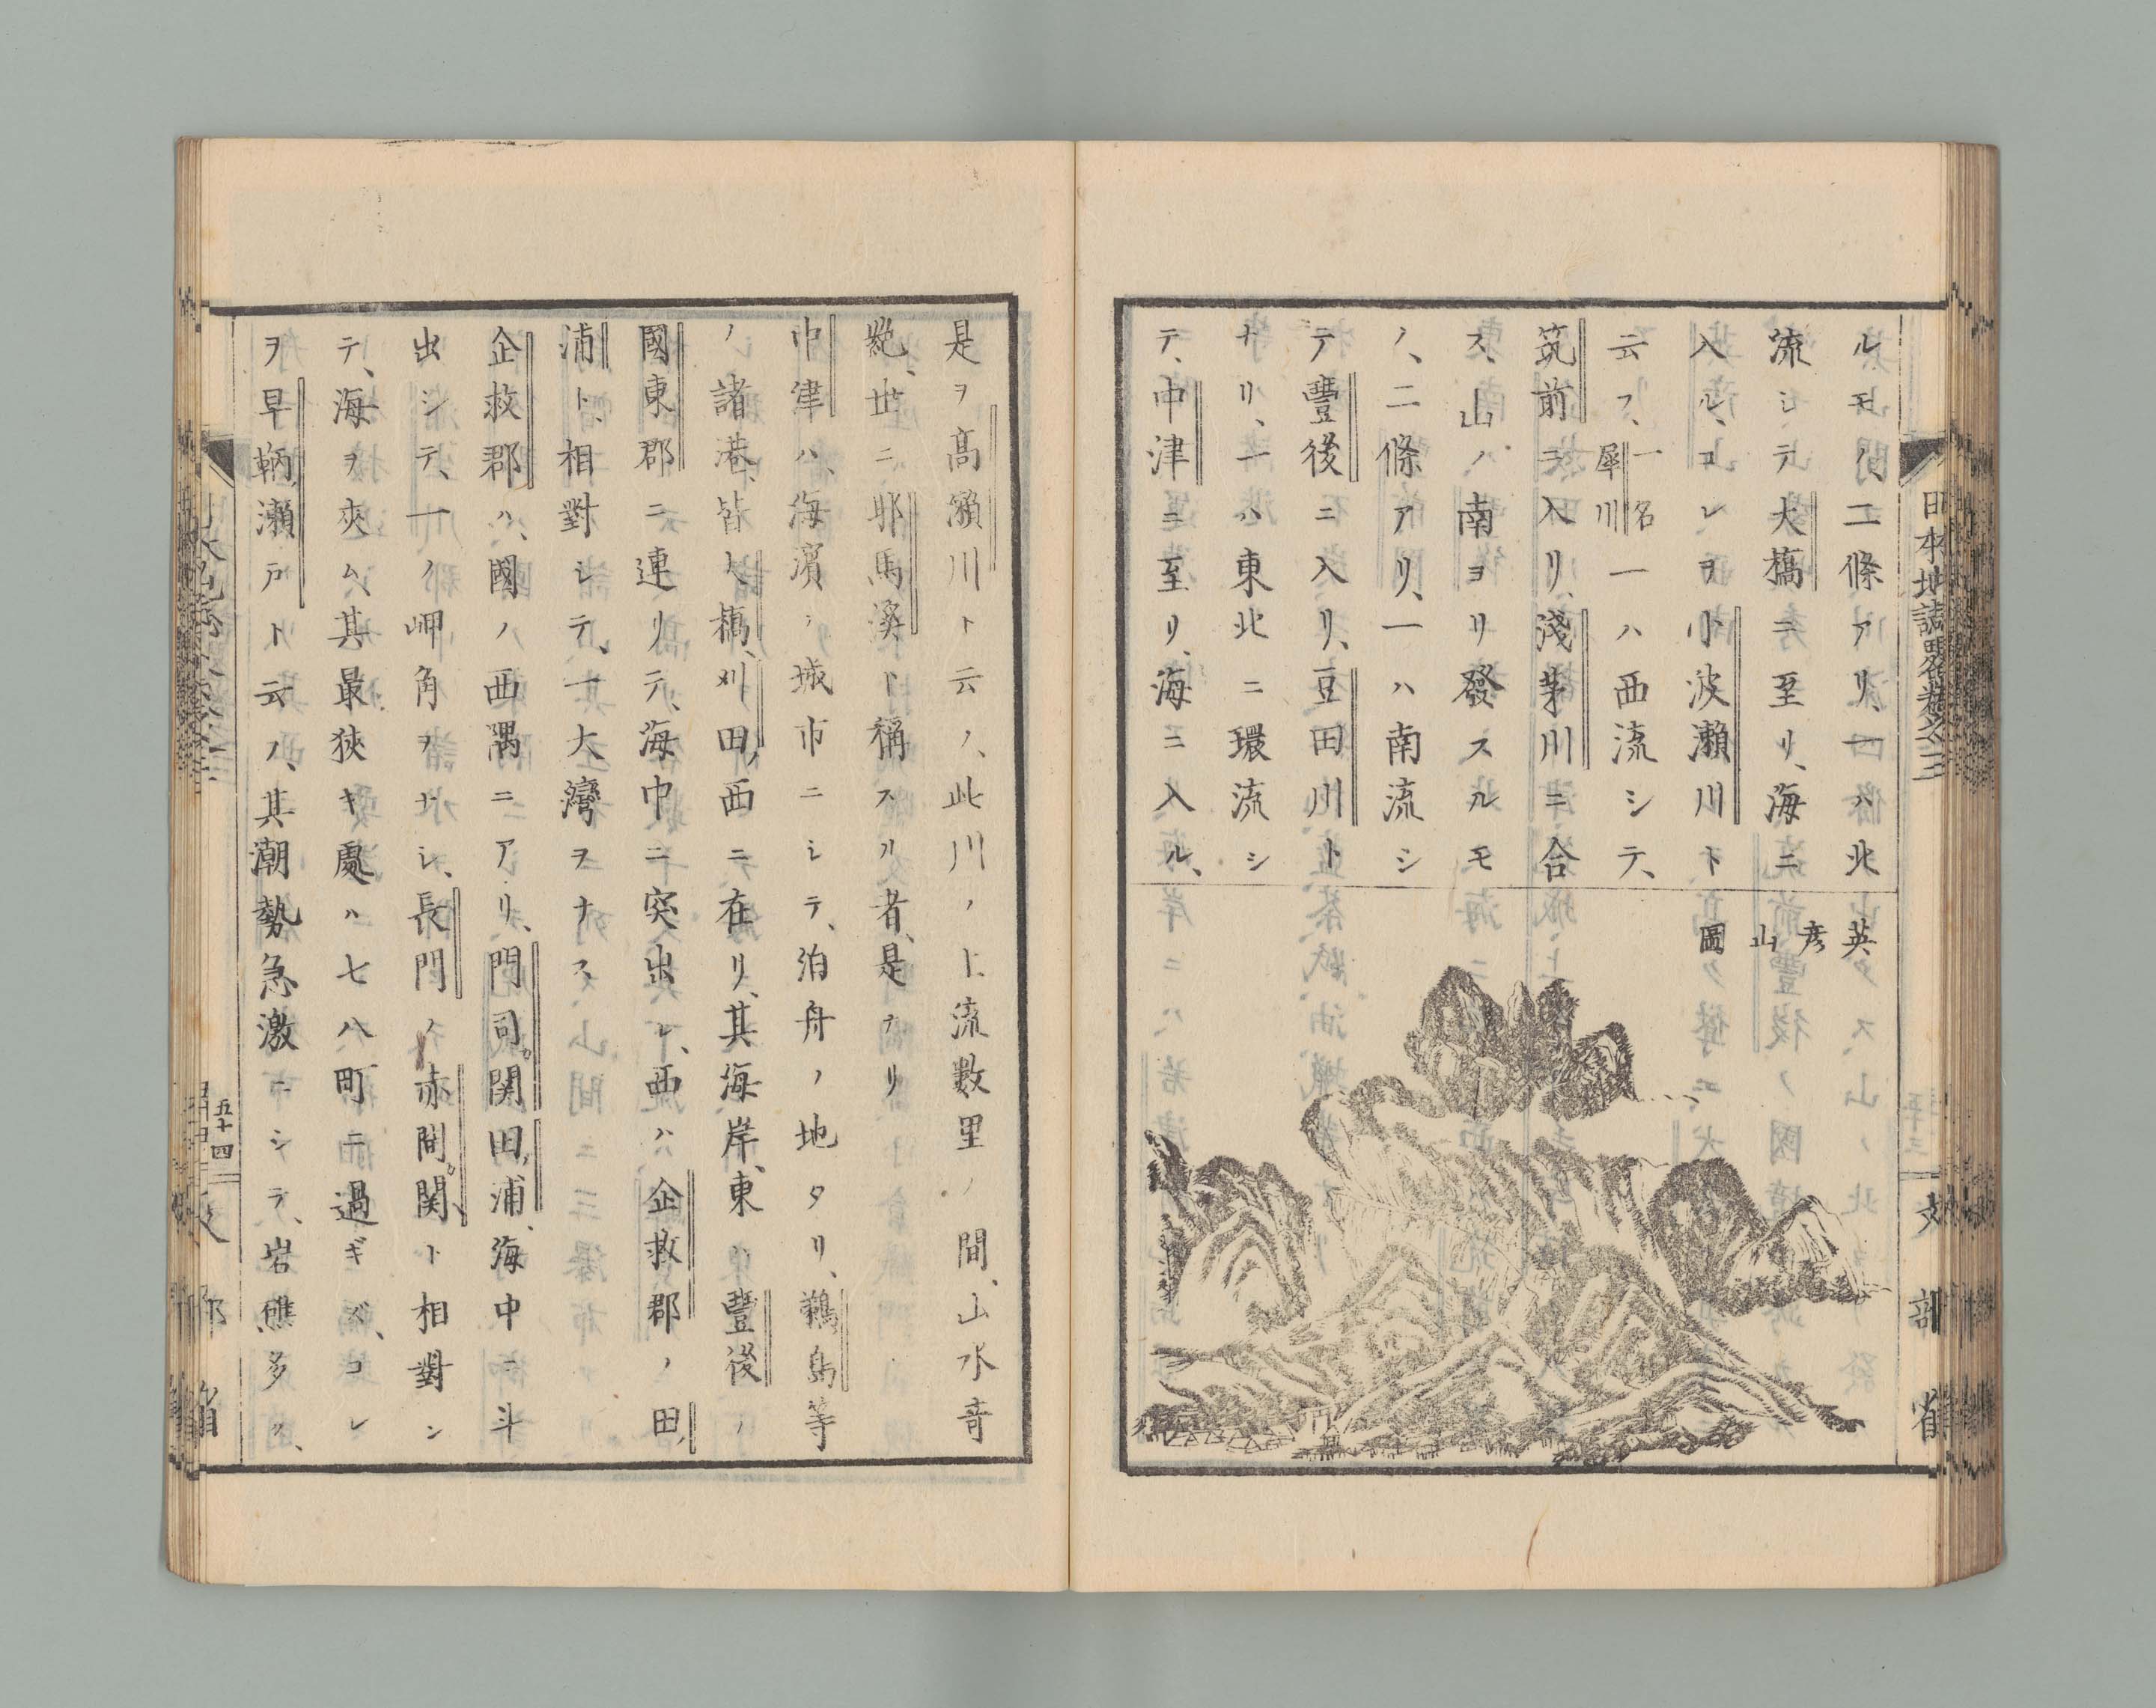 日本地誌略卷之三
文部省
ルモノ、二條アリ、一ハ北
流シテ大橋ニ至リ、海ニ
入ル、コレヲ小波瀬川ト
云フ、一名犀川一ハ西流シテ、
筑前ニ入リ、淺茅川ニ合
ス、山ノ南ヨリ發スルモ
ノ、二條アリ、一ハ南流シ
テ豐後ニ入リ、豆田川ト
ナリ、一ハ東北ニ環流シ
テ、中津ニ至リ、海ニ入ル、
英彦山圖
是ヲ高瀬川ト云フ、此川ノ上流數里ノ間、山水奇
絶、世ニ耶馬溪ト稱スル者、是ナリ
中津ハ、海濱ノ城市ニシテ、泊舟ノ地タリ、鵜島等
ノ諸港、皆大橋、刈田、西ニ在リ、其海岸、東ハ豐後ノ
國東郡ニ連リテ、海中ニ突出シ、西ハ企救郡ノ田
浦ト、相對シテ、一大灣ヲナス、
企救郡ハ、國ノ西隅ニアリ、門司関田浦、海中ニ斗
出シテ、一ノ岬角ヲナシ、長門ノ赤間関ト相對シ
テ、海ヲ夾ム、其最狹キ處ハ七八町ニ過ギズ、コレ
ヲ早鞆瀬戸ト云フ、其潮勢急激ニシテ、岩礁多ク、
五十四